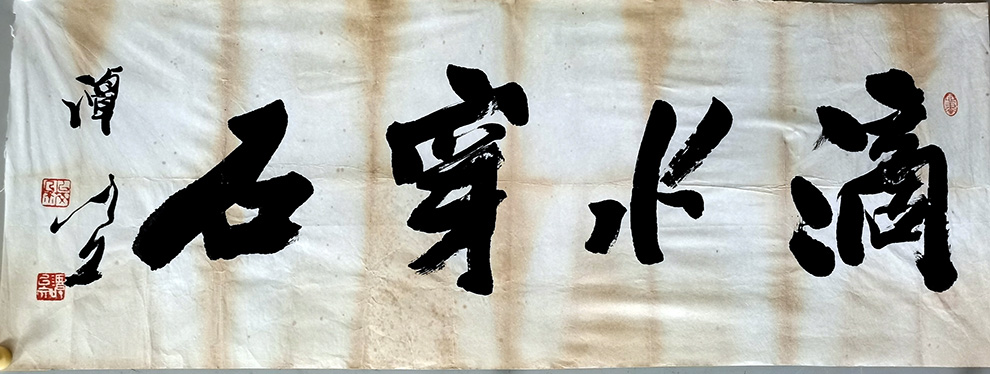 滴水穿石